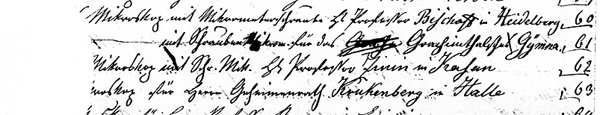 Mikroskop mit Mikrometerschraube H Professor Bischoff in Heidelberg 60
mit Schrauben Mikrom. für das Joachimthalsche Gymna. 61
Mikroskop mit Schr. Mik. H Professor Zinin in Kasan 62
roskop für Herrn Geheimenrath Krukenberg in Halle 63